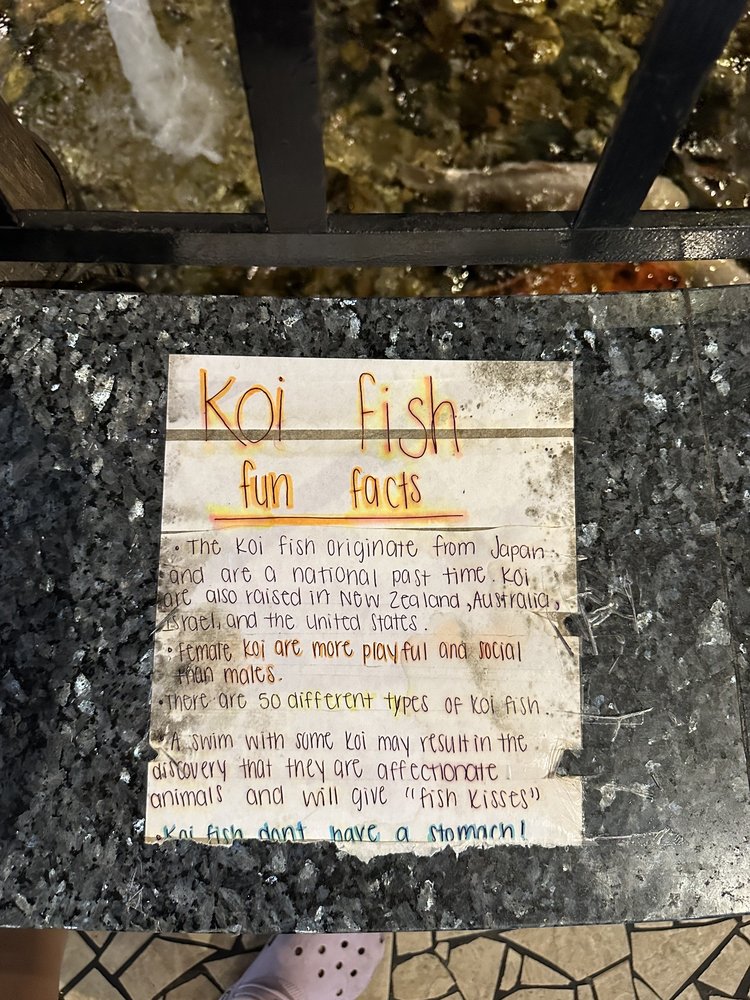 Koi fish
fun facts
• The Koi fish originate from Japan
and are a national past time. Koi
are also raised in New Zealand, Australia,
Israel, and the United States.
• Female Koi are more playful and social
than males.
• There are 50 different types of Koi fish.
• A swim with some Koi may result in the
discovery that they are affectionate
animals and will give "fish kisses"
• Koi fish dont have a stomach!